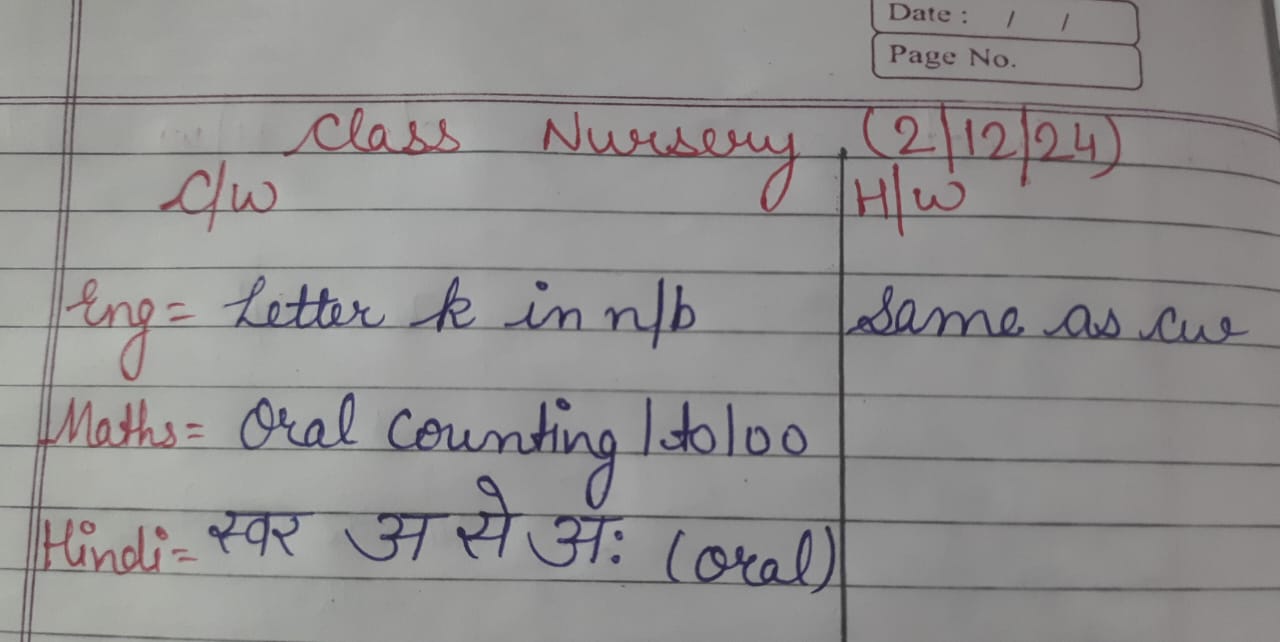 Date : / /
Page No.
Class Nursery (2/12/24)
C/W H/W
Eng = Letter k in n/b Same as cw
Maths = Oral counting 1 to 100
Hindi = स्वर अ से अः (oral)